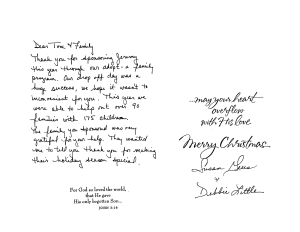 Dear Tom & Family
Thank you for sponsoring Jeremy
this year through our adopt-a family
program. Our drop off day was a
huge success, we hope it wasn't to
inconvenient for you. This year we
were able to help out over 90
families with 175 children.
The family you sponsored was very
grateful for your help. They wanted
me to tell you thank you for making
their holiday season special.
For God so loved the world,
that He gave
His only begotten Son...
JOHN 3:16
...may your heart
overflow
with His love
Merry Christmas
Susan
&
Debbie Little